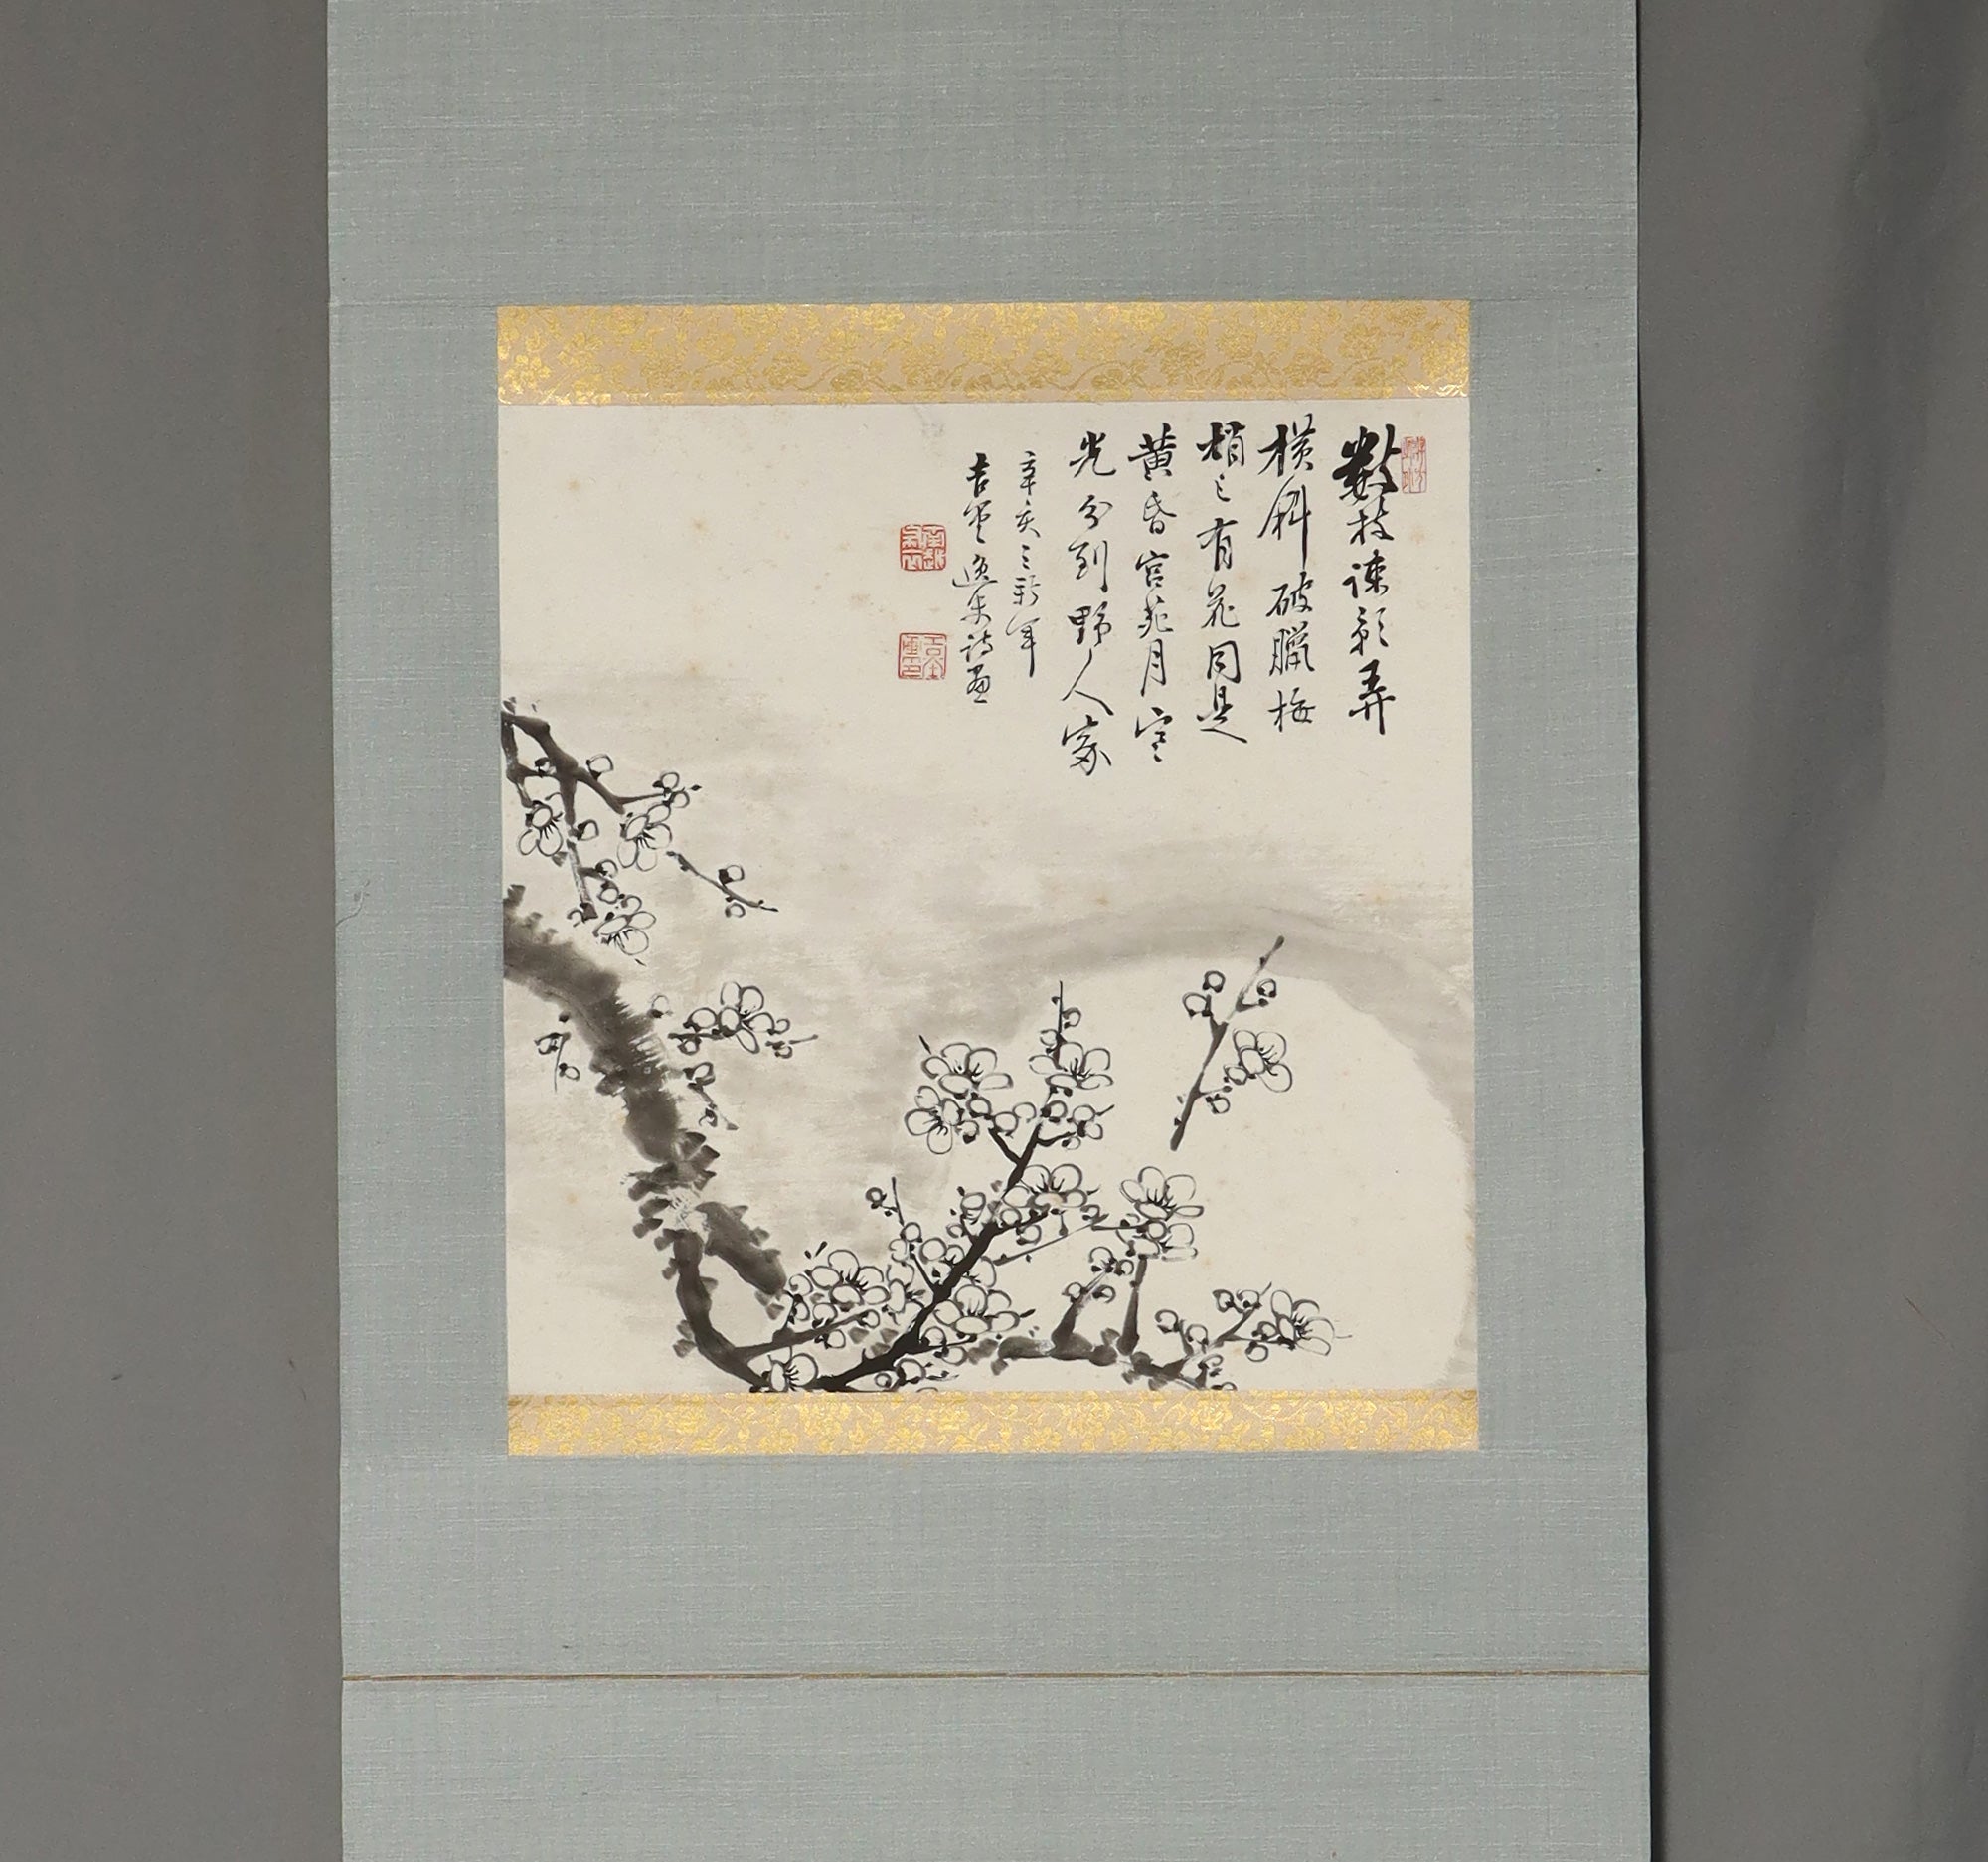 數枝疎影弄
橫斜破臘梅
梢々有花同是
黄昏宮苑月寒
光分到野人家
辛亥三新年
吉堂逸史詩画